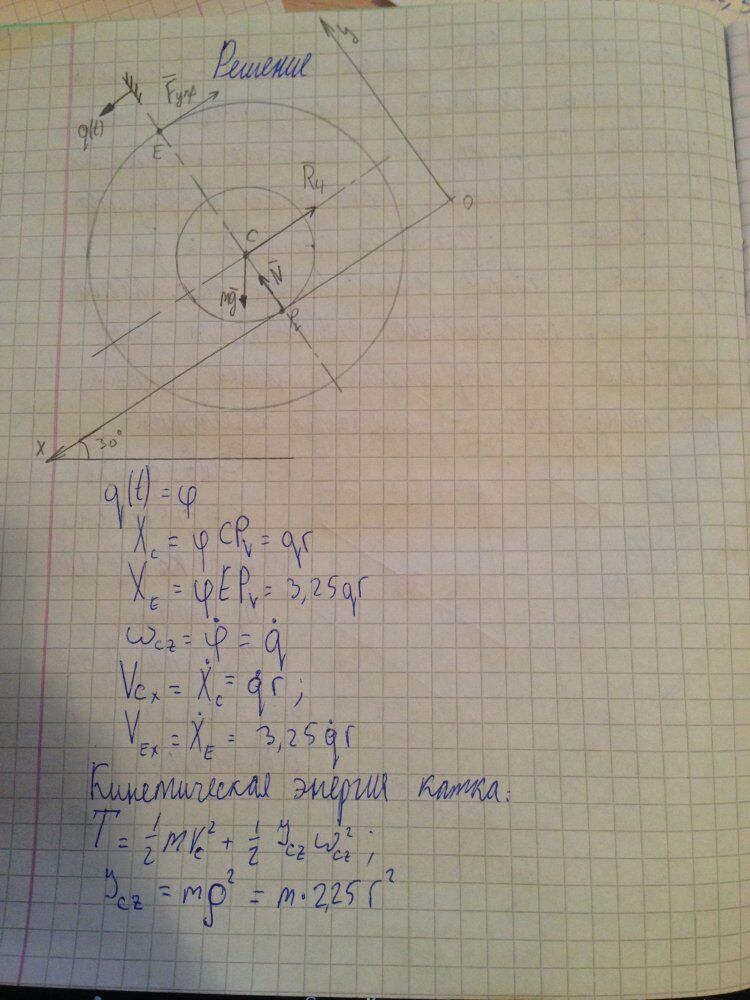 Решение
y
F̄упр
q(t)
E
R̄ц
O
C
N̄
mḡ
Pv
X
30°
q(t) = φ
Xc = φ CPv = qr
XE = φ EPv = 3,25qr
ωcz = φ̇ = q̇
Vcx = Ẋc = q̇r;
VEx = ẊE = 3,25q̇r
Кинетическая энергия катка:
T = 1/2 mVc² + 1/2 Jcz ωcz²;
Jcz = mρ² = m·2,25r²